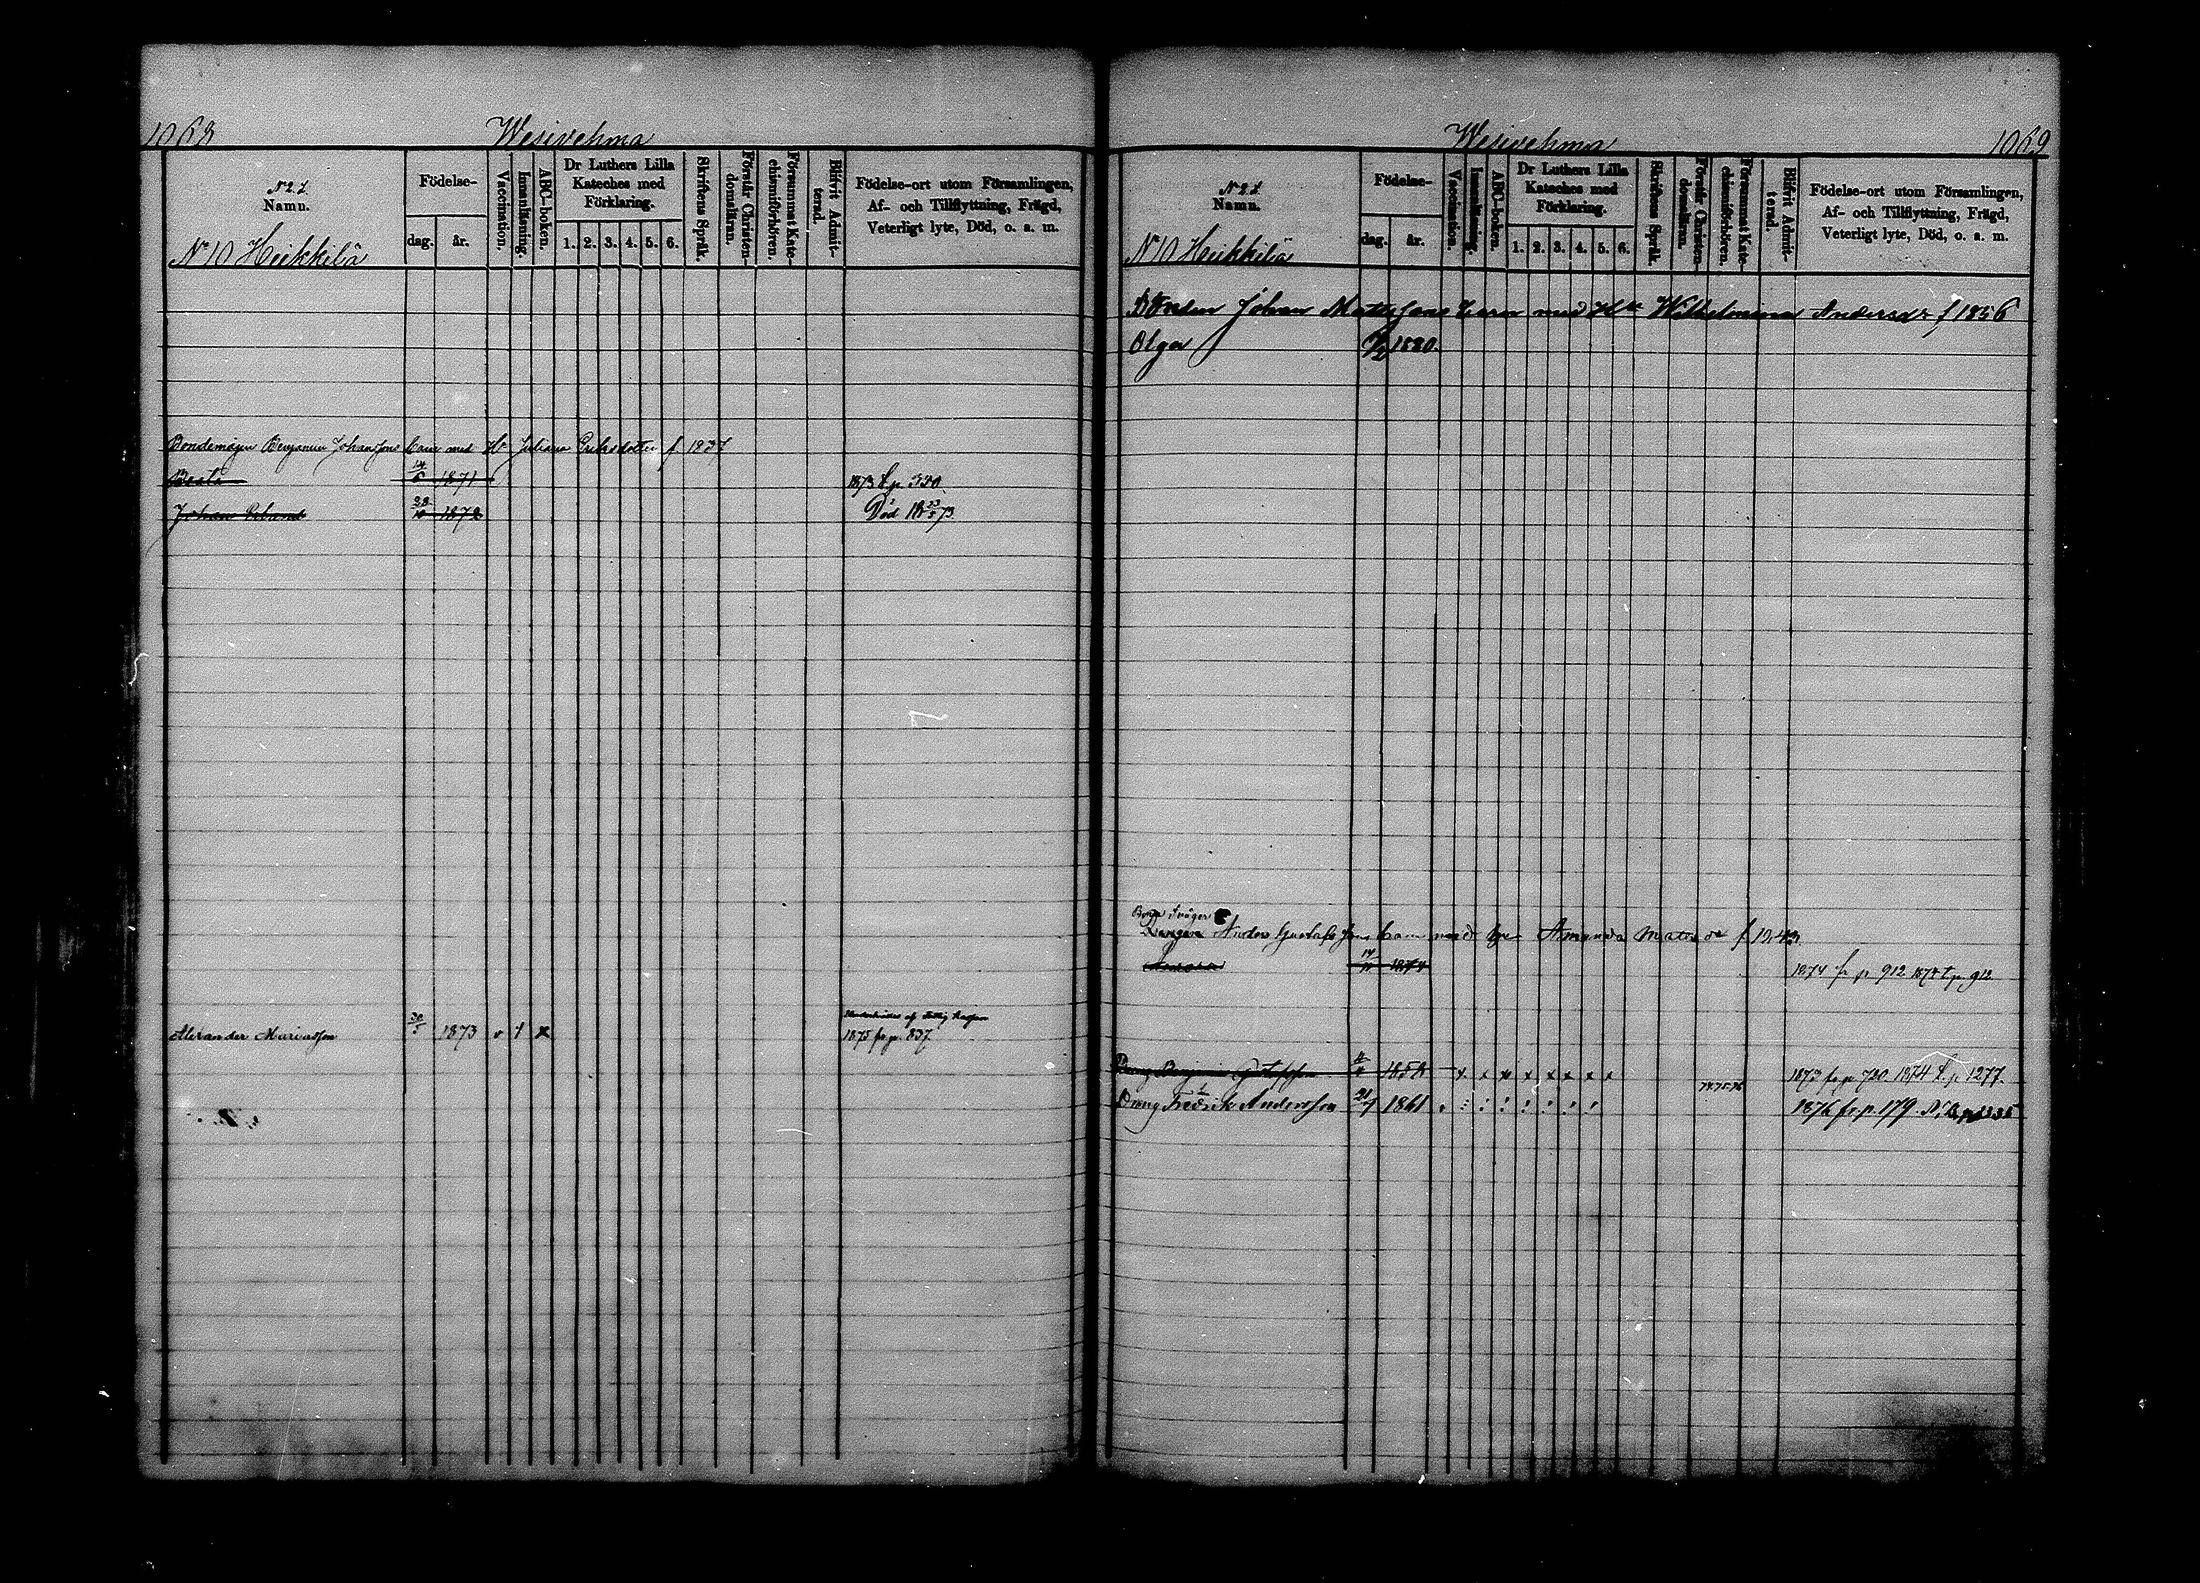 1068
Wesivehma
No 2 L.
Namn.
No 10 Heikkilä
Födelse-
dag.
år.
Vaccination.
Innanläsning.
ABC-boken.
Dr Luthers Lilla
Kateches med
Förklaring.
1. 2. 3. 4. 5. 6.
Skriftens Språk.
Förstår Christen-
domsläran.
Försummat Kate-
chismiförhören.
Blifvit Admit-
terad.
Födelse-ort utom Församlingen,
Af- och Tillflyttning, Frägd,
Veterligt lyte, Död, o. a. m.
Bondemågen Benjamin Johanssons barn med Hu Juliana Eriksdotter f 1837
Beata 1871 1873 t. p.
Johan 1872 Död 18 73.
Alexander Mariasson 1873 v 1 x
1875 fr. p. 837.
1069
Wesivehma
No 2 L.
Namn.
No 10 Heikkilä
Födelse-
dag.
år.
Vaccination.
Innanläsning.
ABC-boken.
Dr Luthers Lilla
Kateches med
Förklaring.
1. 2. 3. 4. 5. 6.
Skriftens Språk.
Förstår Christen-
domsläran.
Försummat Kate-
chismiförhören.
Blifvit Admit-
terad.
Födelse-ort utom Församlingen,
Af- och Tillflyttning, Frägd,
Veterligt lyte, Död, o. a. m.
Bonden Johan Mattssons barn med Hu Wilhelmina Andersdr f 1856
Olga 1880.
Svåger
Anders Gustafssons barn med Amanda Matsdr
1874 1874 fr p 912 1874 t. p. 912
Dräng Benjamin Gustafsson 1858 x x x x x x x x 1873 fr. p. 720. 1874 t. p. 1277.
Dräng Fredrik Andersson 21/7 1861 1876 fr. p. 179.